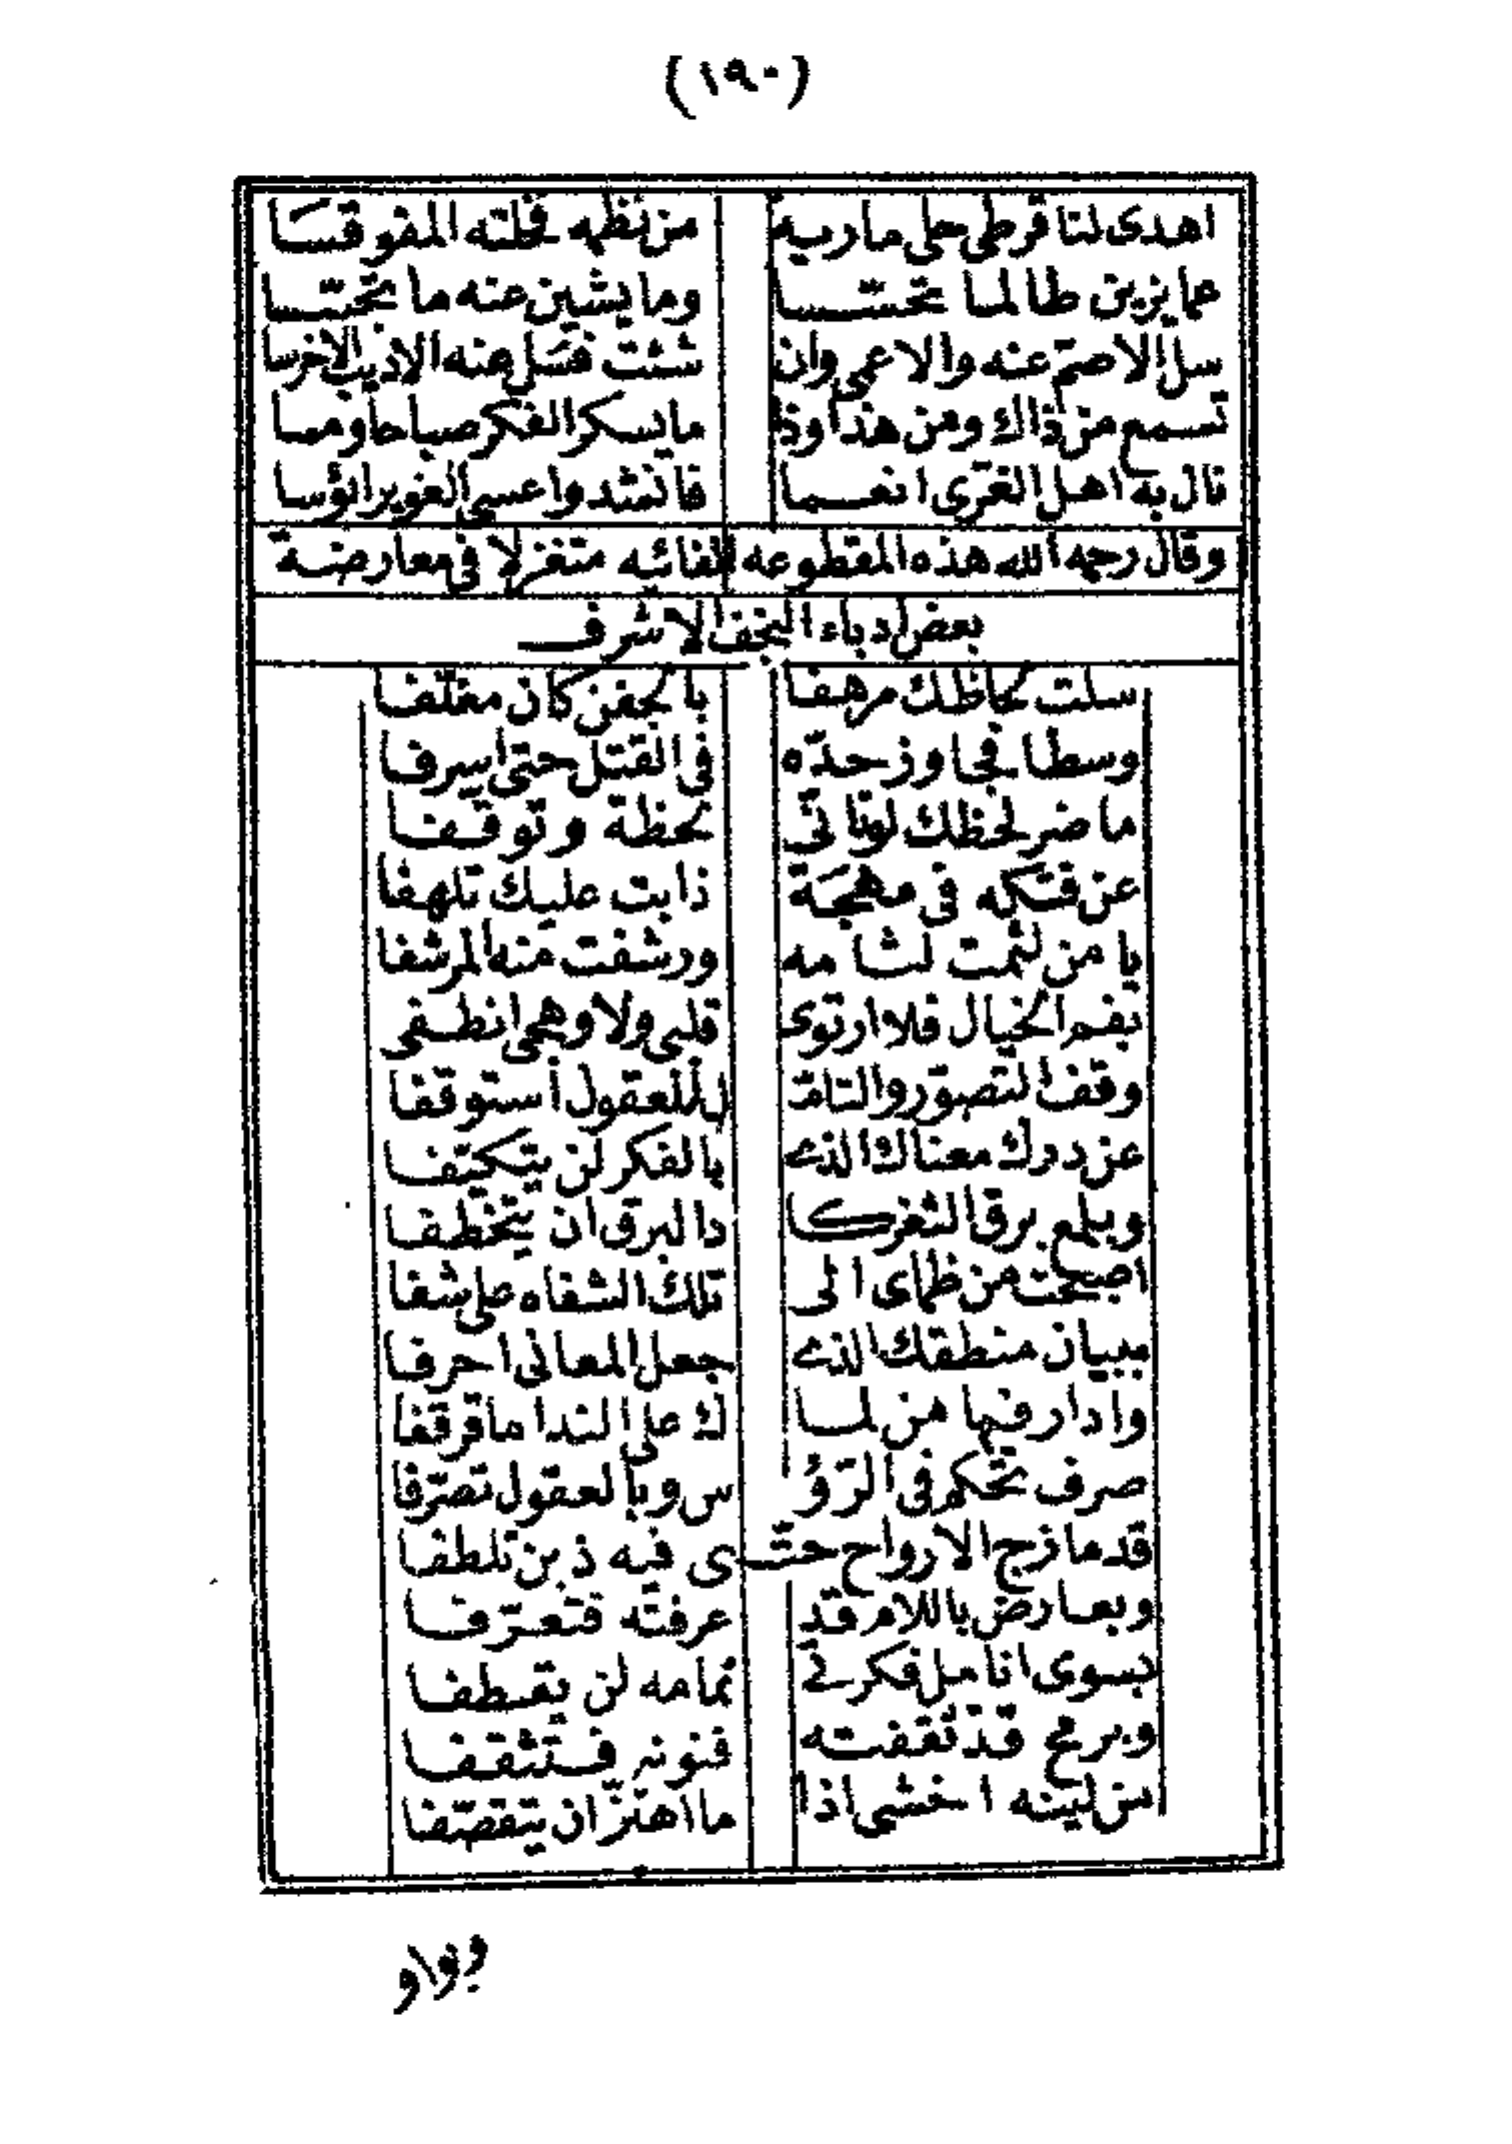 (١٩٠)
اهدى لنا قرطى على مارية من نظمه فخلته المقوقسا
عما يزين طالما تحتسا وما يشين عنه ما تحتسا
سل الاصم عنه والاعمى وان شئت فسل عنه الاديب الاخرسا
تسمع من ذاك ومن هذا وذا ما يسكر الفكر صباحا ومسا
قال به اهل الغرى انعما فانشدوا عسى الغوير ابؤسا
وقال رحمه الله هذه المقطوعه الفائيه متغزلا فى معارضة
بعض ادباء النجف الاشرف
سلت لحاظك مرهفا بالجفن كان مغلفا
وسطا فجاوز حده فى القتل حتى اسرفا
ما ضر لحظك لو تانى لحظة وتوقفا
عن فتكه فى مهجة ذابت عليك تلهفا
يا من لثمت لثامه ورشفت منه المرشفا
بفم الخيال فلا ارتوى قلبى ولا وهمى انطفى
وقف التصور والتامل للعقول استوقفا
عن درك معناك الذى بالفكر لن يتكيفا
وبلمع برق الثغر كا دالبرق ان يتخطفا
اصبحت من ظماى الى تلك الشفاه على شفا
ببيان منطقك الذى جعل المعانى احرفا
وادار فيها من لما ك على الندا ما قرقفا
صرف تحكم فى الرؤ س وبالعقول تصرفا
قد مازج الارواح حتى فيه ذبن تلطفا
وبعارض باللام قد عرفته فتعرفا
بسوى انامل فكرتى نمامه لن يقطفا
وبرمح قد ثقفت‍ه فنونه فتثقفا
من لينه اخشى اذا ما اهتز ان يتقصفا
وبواو